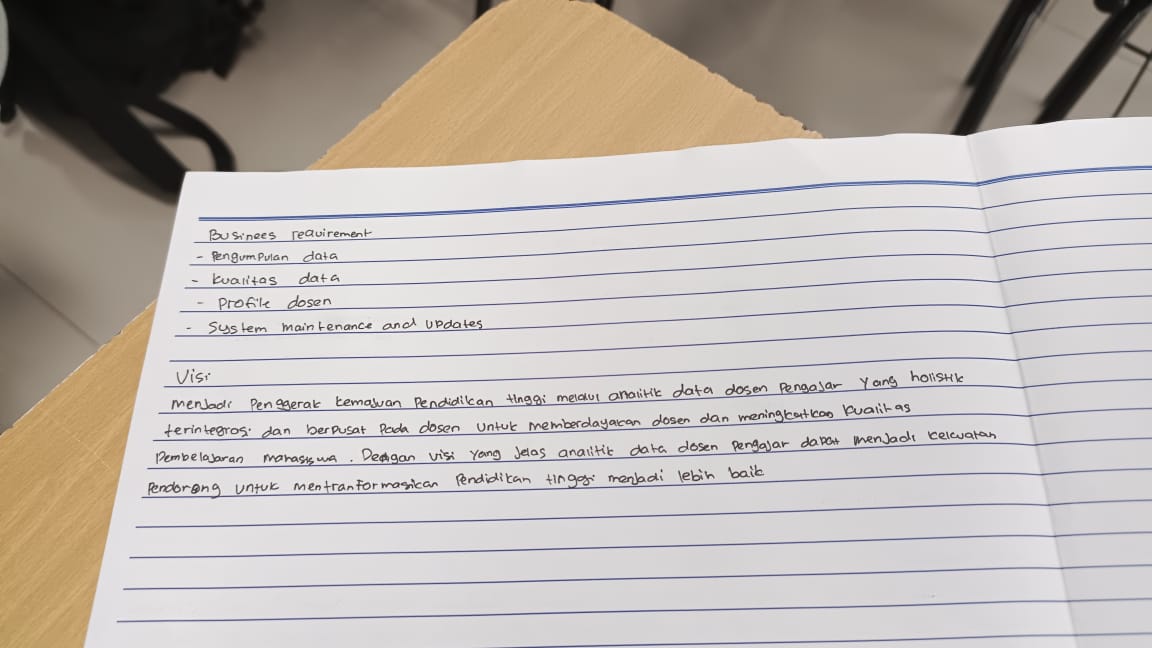 Businees requirement
- Pengumpulan data
- Kualitas data
- Profile dosen
- System maintenance and updates
Visi
menjadi Penggerak kemajuan Pendidikan tinggi melalui analitik data dosen Pengajar yang holistik
terintegrasi dan berpusat Pada dosen untuk memberdayakan dosen dan meningkatkan kualitas
Pembelajaran mahasiswa. Dengan visi yang jelas analitik data dosen pengajar dapat menjadi kekuatan
Pendorong untuk mentranformasikan Pendidikan tinggi menjadi lebih baik